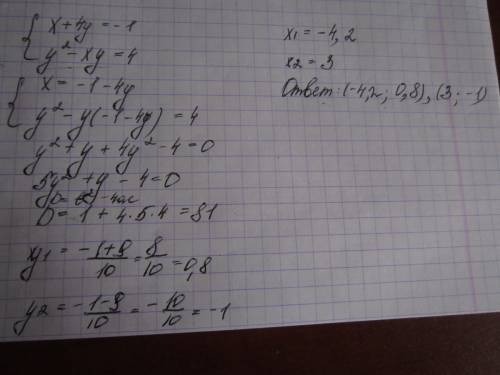 x + 4y = -1
y² - xy = 4
x = -1 - 4y
y² - y(-1 - 4y) = 4
y² + y + 4y² - 4 = 0
5y² + y - 4 = 0
D = 1 + 4·5·4 = 81
y1 = (-1+9)/10 = 8/10 = 0,8
y2 = (-1-9)/10 = -10/10 = -1
x1 = -4,2
x2 = 3
Ответ: (-4,2; 0,8), (3; -1)